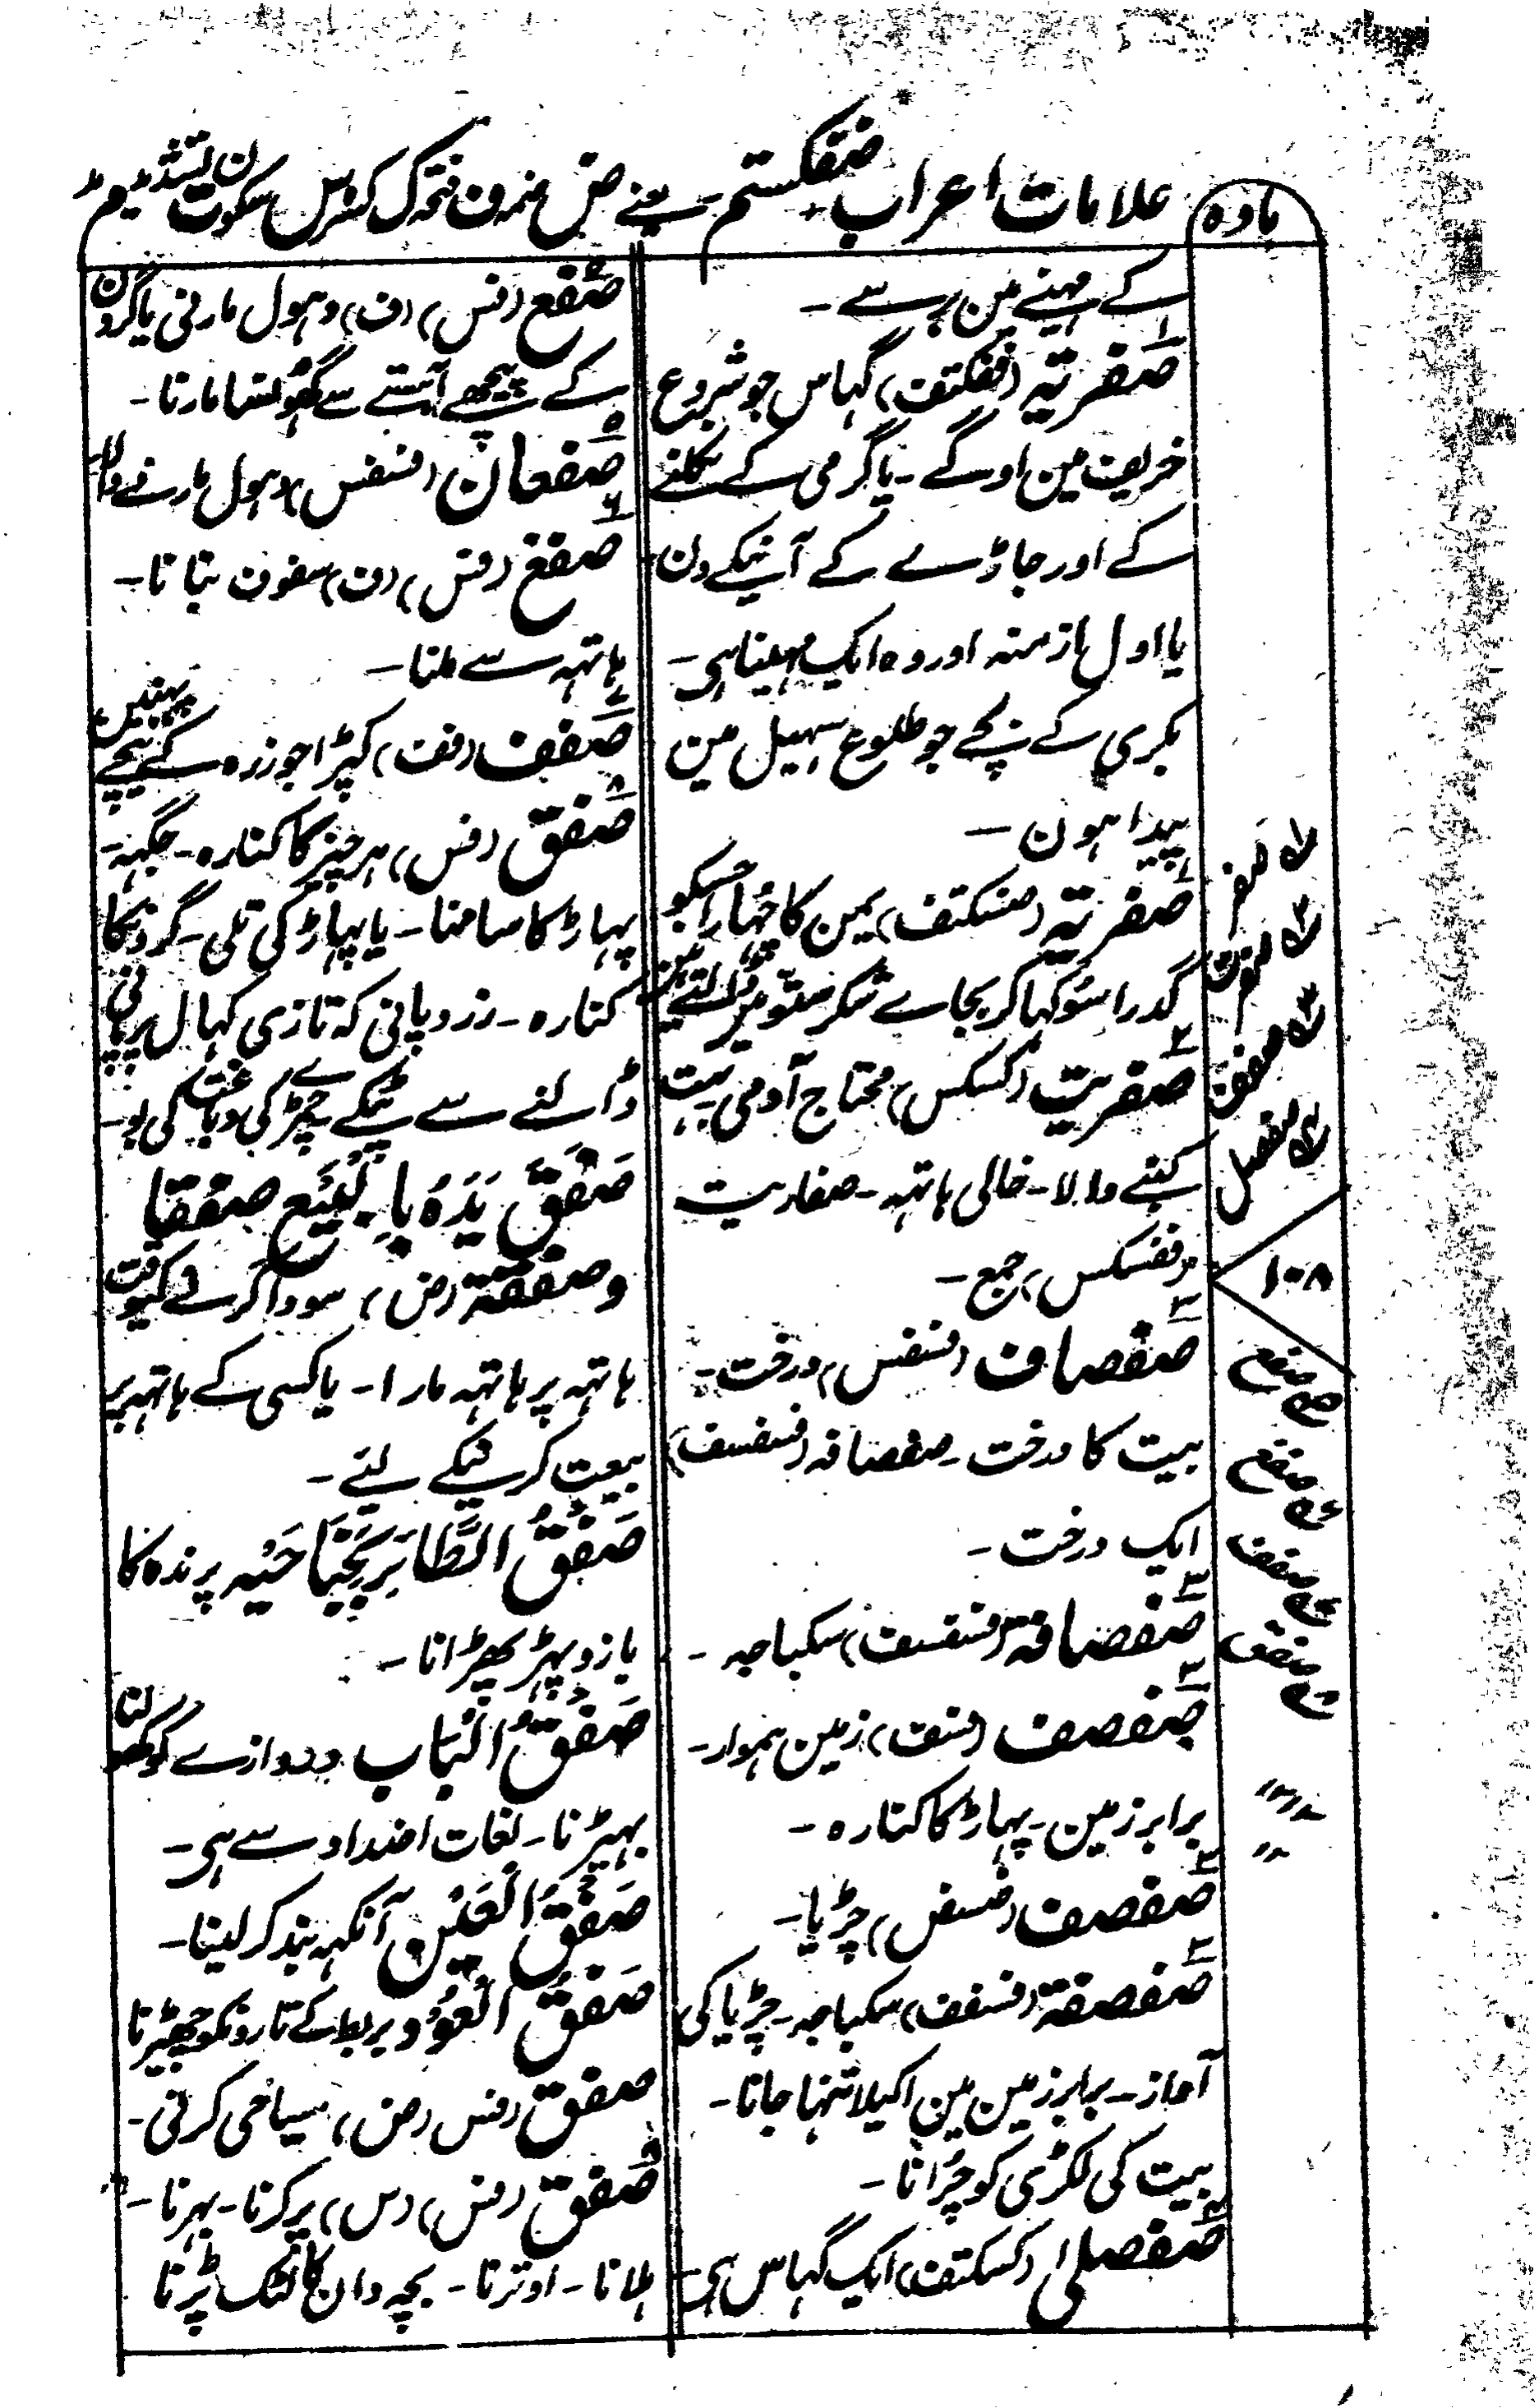 مادہ
علامات اعراب ضفکستم - یعنے ض ضمہ ف فتحہ ک کسرہ س سکون ت تشدید م مد
کے مہینے مین برسے -
صَفَرِیّۃ (ففکتف) گہاس جو شروع
خریف مین اوگے - یا گرمی کے نکلنے
کے اور جاڑے کے آنیکے دن -
یا اول ازمنہ اور وہ ایک مہینا ہی -
بکری کے بچے جو طلوع سہیل مین
پیدا ہون -
صفریّۃ (ضسکتف) یمن کا چہارا جسکو
گدرا سُوکہا کر بجاے شکر ستّو مین ڈالتے ہین
صفریت (کسکس) محتاج آدمی بہت
کہنے والا - خالی ہاتہہ - صفاریت
(ففسکس) جمع -
صفصاف (فسفس) درخت -
بیت کا درخت - صفصافہ (فسفسف)
ایک درخت -
صفصافۃ (فسفسف) سکباجہ -
صفصف (فسف) زمین ہموار -
برابر زمین - پہاڑ کا کنارہ -
صفصف (ضسض) چڑیا -
صفصفۃ (فسفف) سکباجہ - چڑیا کی
آواز - برابر زمین مین اکیلا تنہا جانا -
بیت کی لکڑی کو چُرانا -
صفصلی (کسکتف) ایک گہاس ہی -
صفع (فس) (ف) دہول مارنی یا گردن
کے پیچھے آہستے سے گھونسا مارنا -
صفعان (فسفس) دہول مارنے والا
صفغ (فس) (ف) سفوف بنانا -
ہاتہہ سے ملنا -
صفف (فف) کپڑا جو زرہ کے نیچے پہنین
صفق (فس) ہر چیز کا کنارہ - جگہہ -
پہاڑ کا سامنا - یا پہاڑ کی تلی - گردنکا
کنارہ - زرد پانی کہ تازی کہال پر پانی
ڈالنے سے ٹپکے چمڑے کی دباغت کی بو -
صَفَقَ یَدَہُ بِالْبَیْعِ صفقا
و صفقۃ (ض) سودا کرنے کیوقت
ہاتہہ پر ہاتہہ مارا - یا کسی کے ہاتہہ پر
بیعت کرنیکے لئے -
صَفْقُ الطَّائِر بِجَنَاحَیْہ پرندہ کا
بازو پہڑ پھڑانا -
صَفْقُ الْبَاب دروازے کو کھولنا
بہیڑنا - لغات اضداد سے ہی -
صَفْقُ الْعَیْن آنکہہ بند کر لینا -
صَفْقُ الْعُوْد بربط کے تارونکو چھیڑنا
صفق (فس) (ض) سیاحی کرنی -
صفق (فس) (س) پر کرنا - بہرنا -
ہلانا - اوترنا - بچہ دان کا لٹک پڑنا
صفر
صفرت
صفصف
صفصل
۱۰۸
صفع
صفغ
صفف
صفق